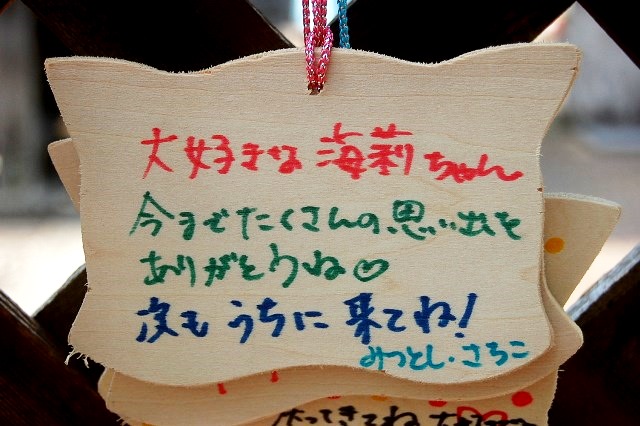 大好きな海莉ちゃん
今までたくさんの思い出を
ありがとうね♡
次もうちに来てね!
みつとし・さちこ
ってきてね